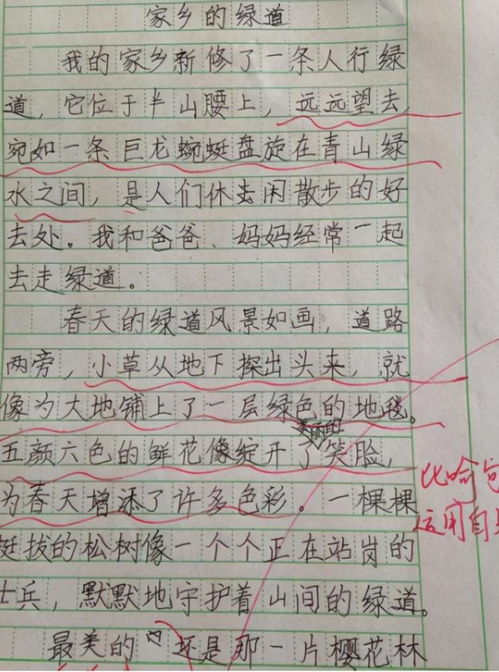 家乡的绿道
我的家乡新修了一条人行绿
道，它位于半山腰上，远远望去，
宛如一条巨龙蜿蜒盘旋在青山绿
水之间，是人们休去闲散步的好
去处。我和爸爸、妈妈经常一起
去走绿道。
春天的绿道风景如画，道路
两旁，小草从地下探出头来，就
像为大地铺上了一层绿色的地毯。
美丽的
五颜六色的鲜花像绽开了笑脸，
为春天增添了许多色彩。一棵棵
比喻句
挺拔的松树像一个个正在站岗的
运用自
士兵，默默地守护着山间的绿道。
最美的 还是那一片樱花林